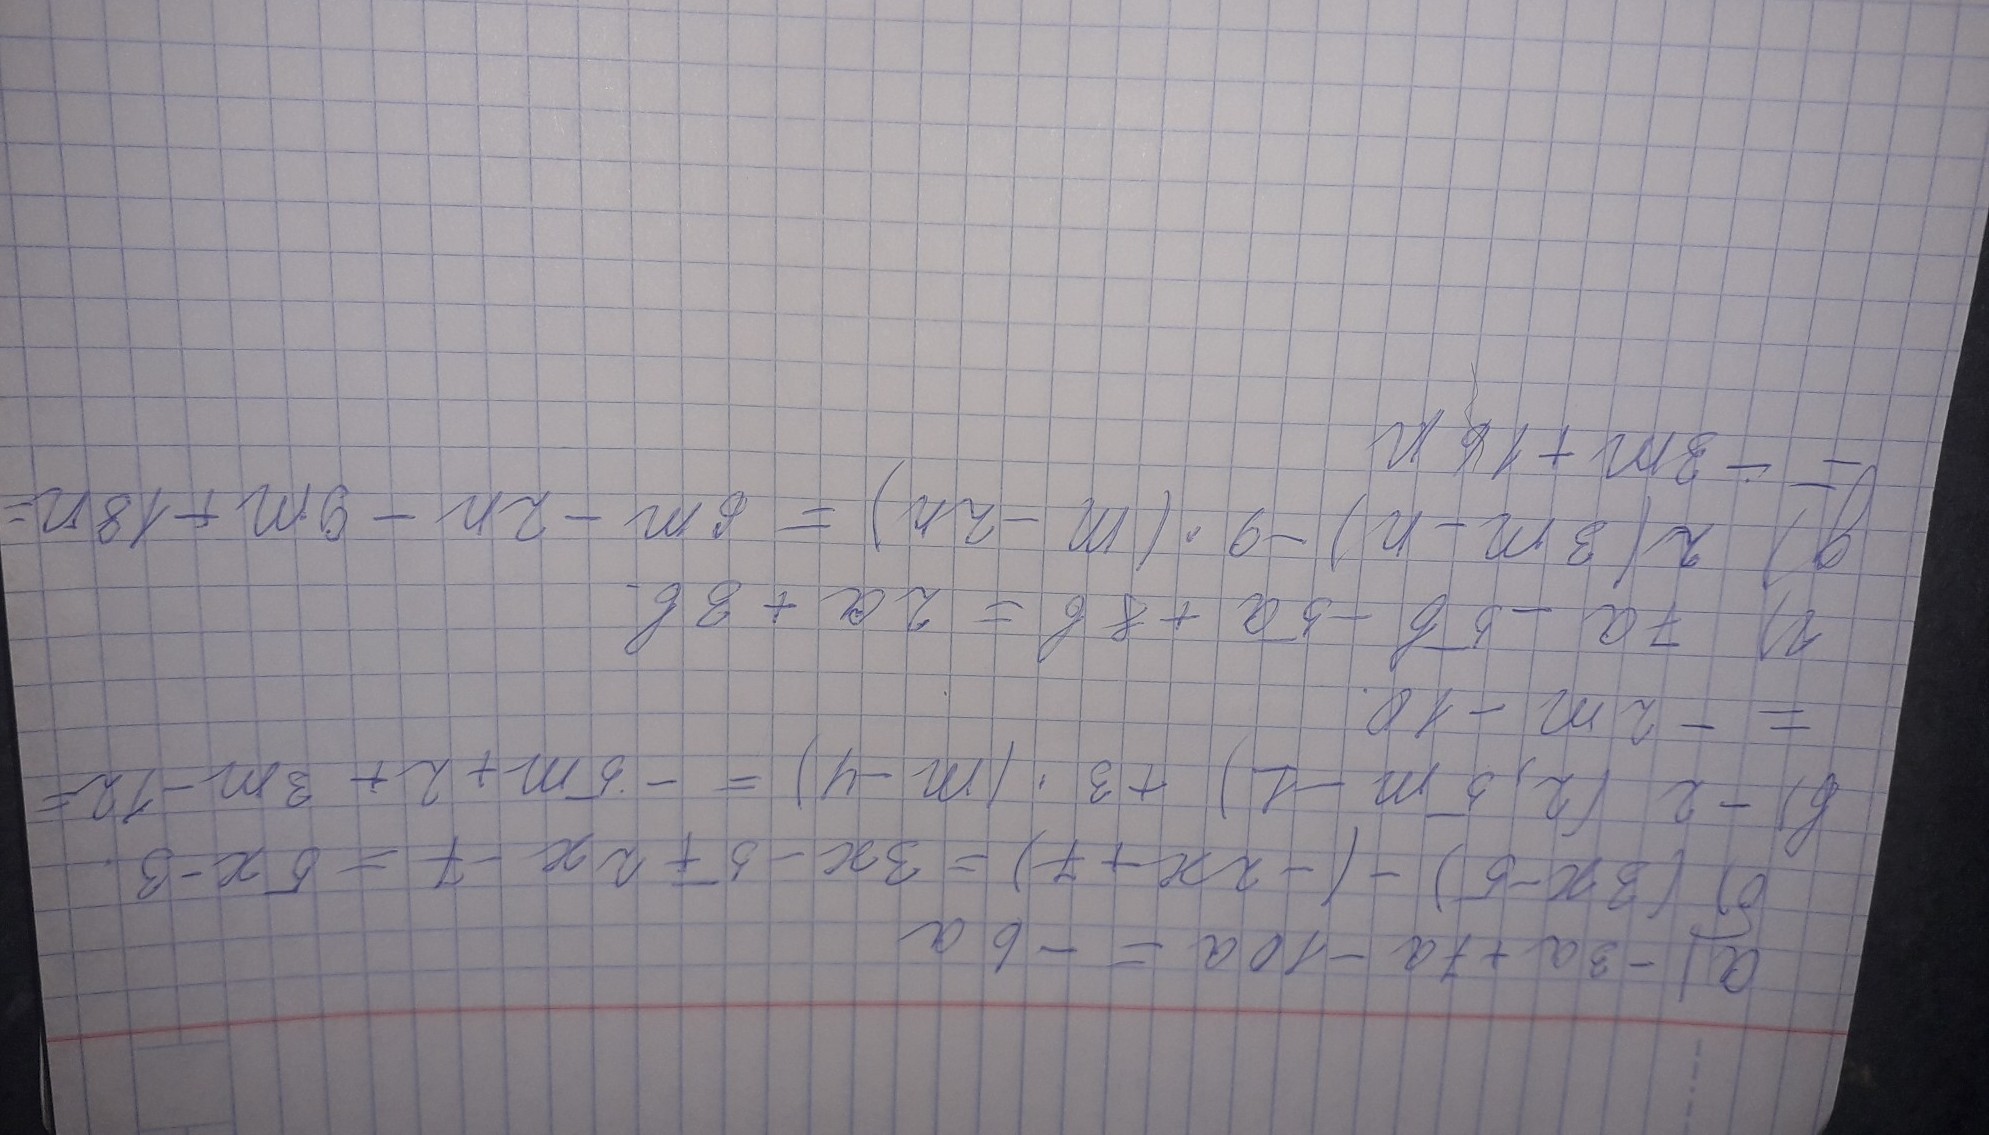 а) -3a+7a-10a = -6a
б) (3x-5) - (-2x+7) = 3x-5+2x-7 = 5x-3.
в) -2 (2,5m-1) +3 · (m-4) = -5m+2+3m-12=
= -2m-10.
г) 7a-5b-5a+8b = 2a+3b.
д) 2(3m-n)-9·(m-2n) = 6m-2n-9m+18n=
= -3m+16n